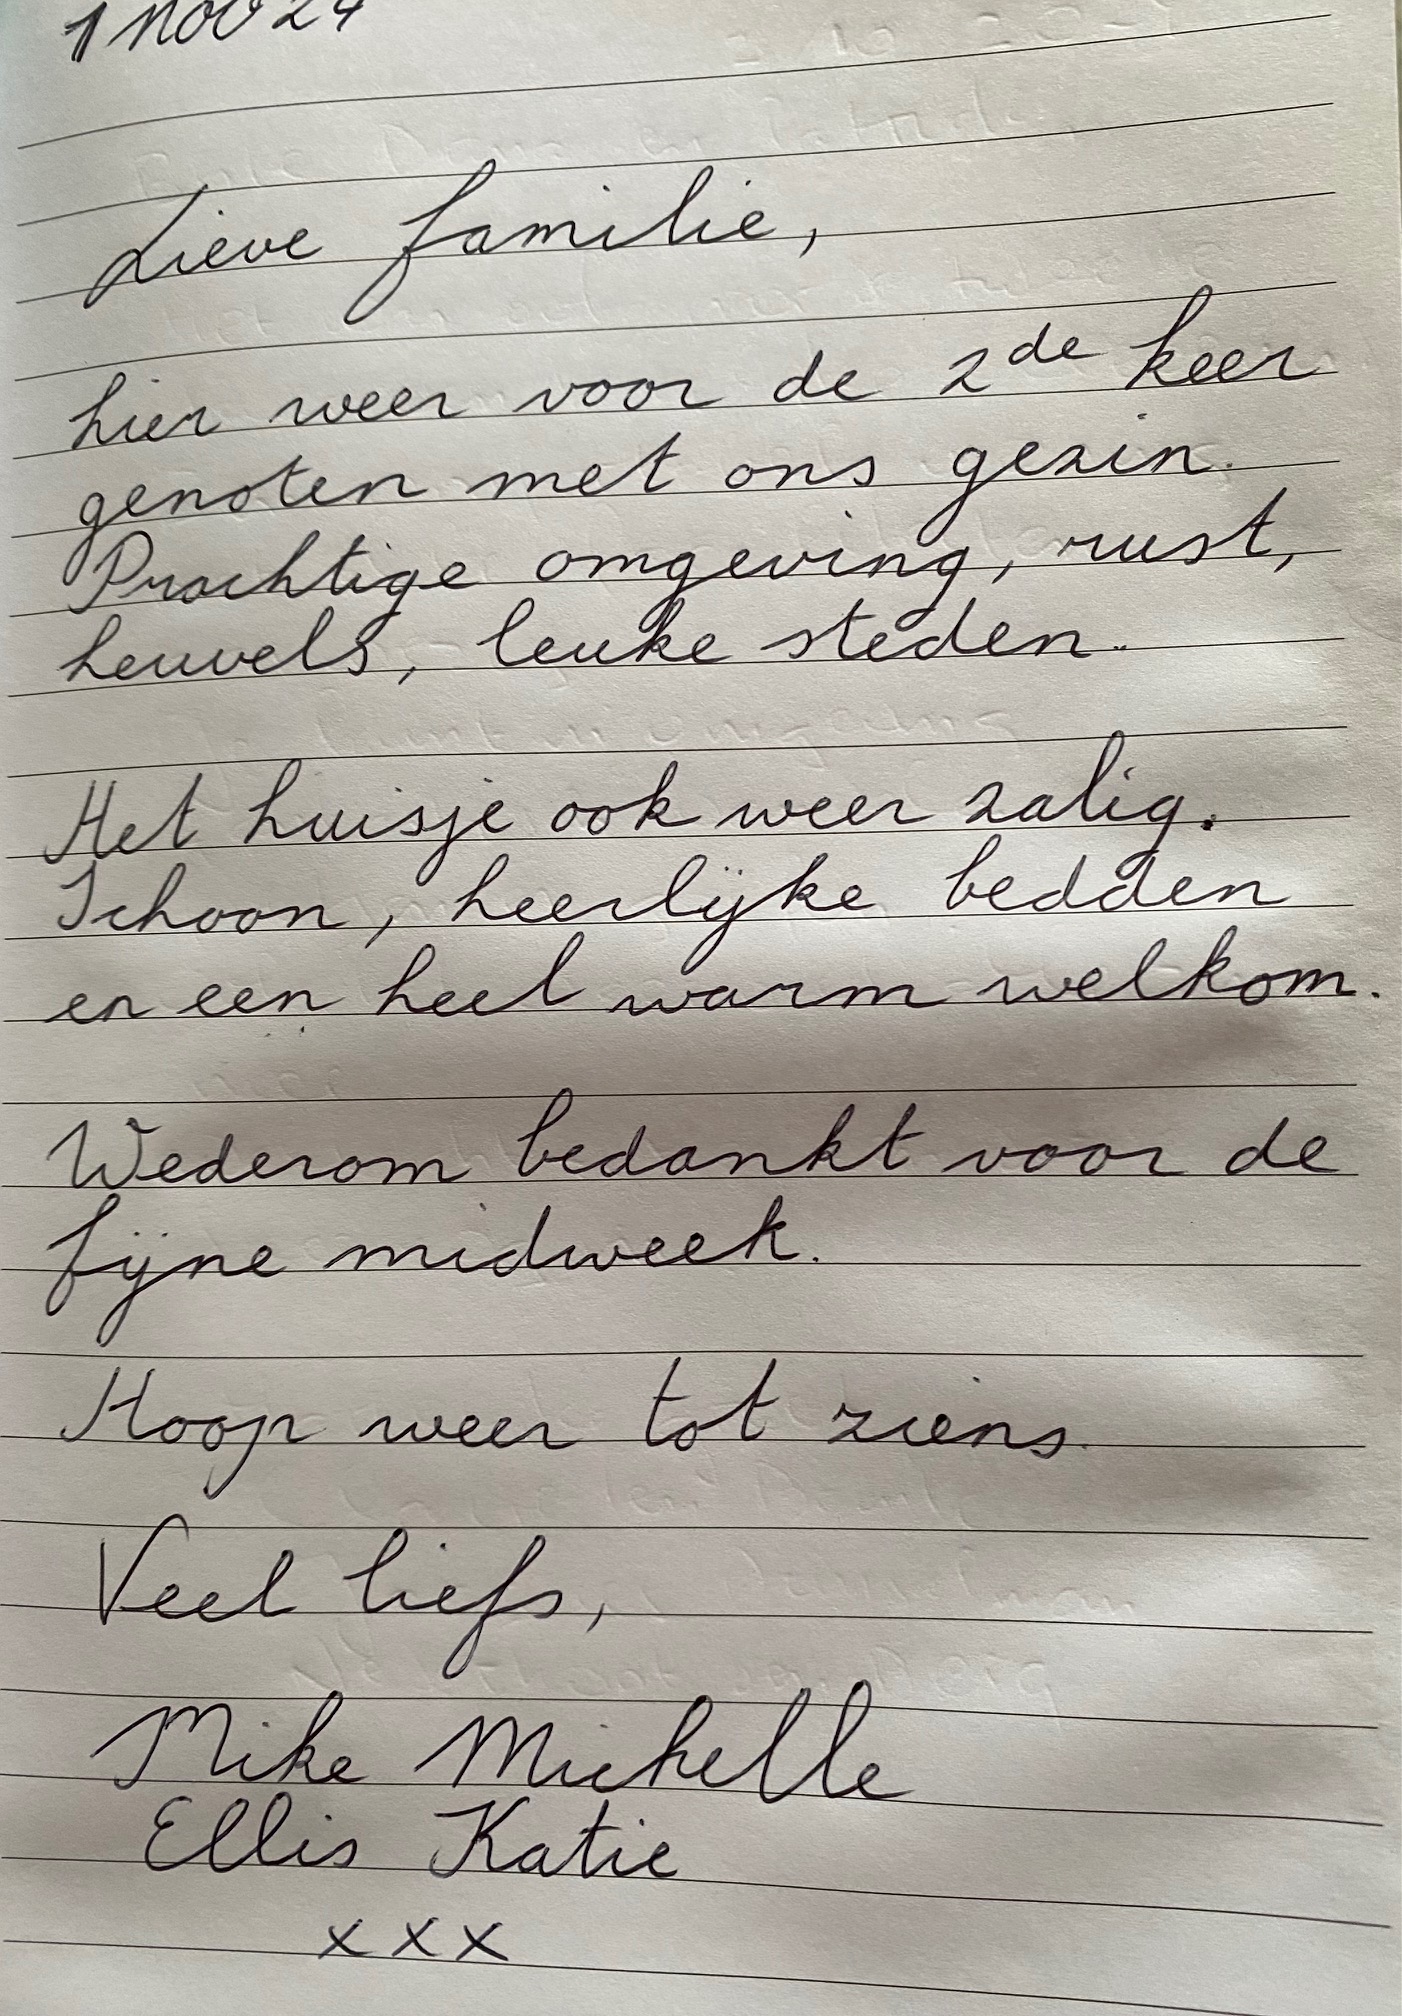 1 nov 24
Lieve familie,
hier weer voor de 2de keer
genoten met ons gezin.
Prachtige omgeving, rust,
heuvels, leuke steden.
Het huisje ook weer zalig.
Schoon, heerlijke bedden
en een heel warm welkom.
Wederom bedankt voor de
fijne midweek.
Hoop weer tot ziens.
Veel liefs,
Mike Michelle
Ellis Katie
xxx